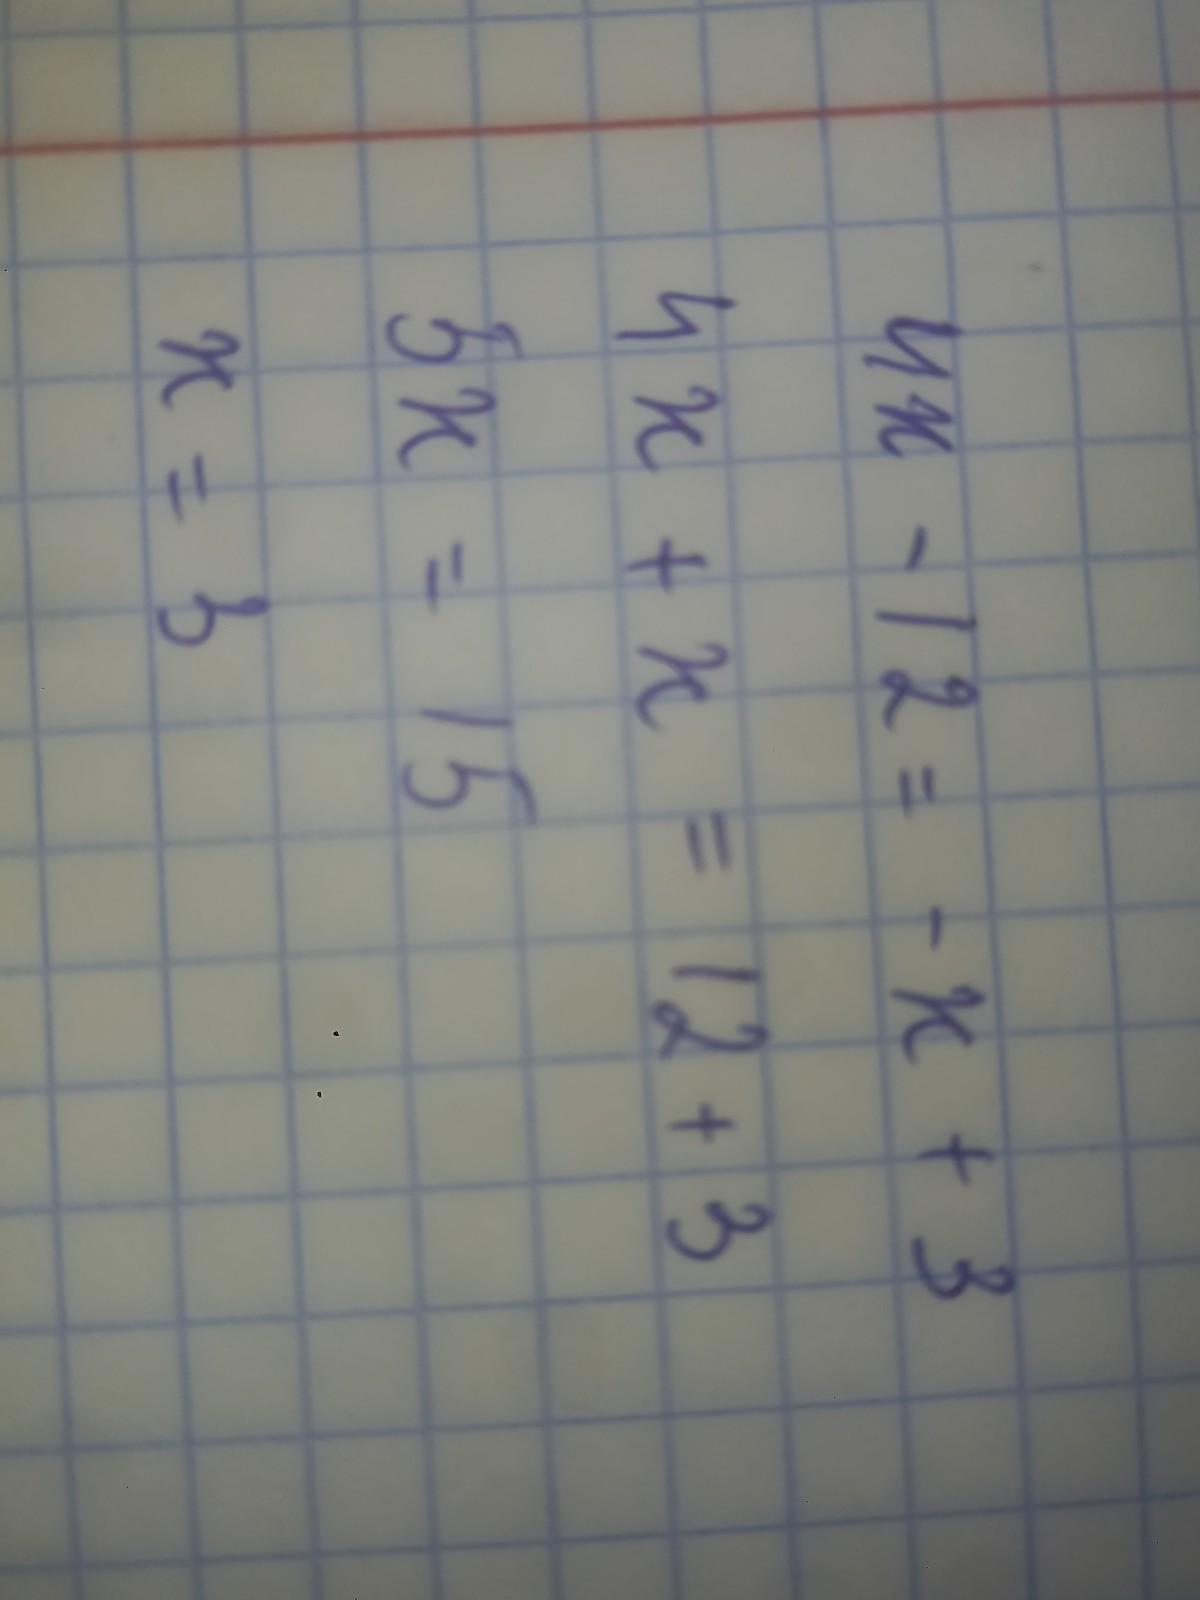 4x - 12 = -x + 3
4x + x = 12 + 3
5x = 15
x = 3